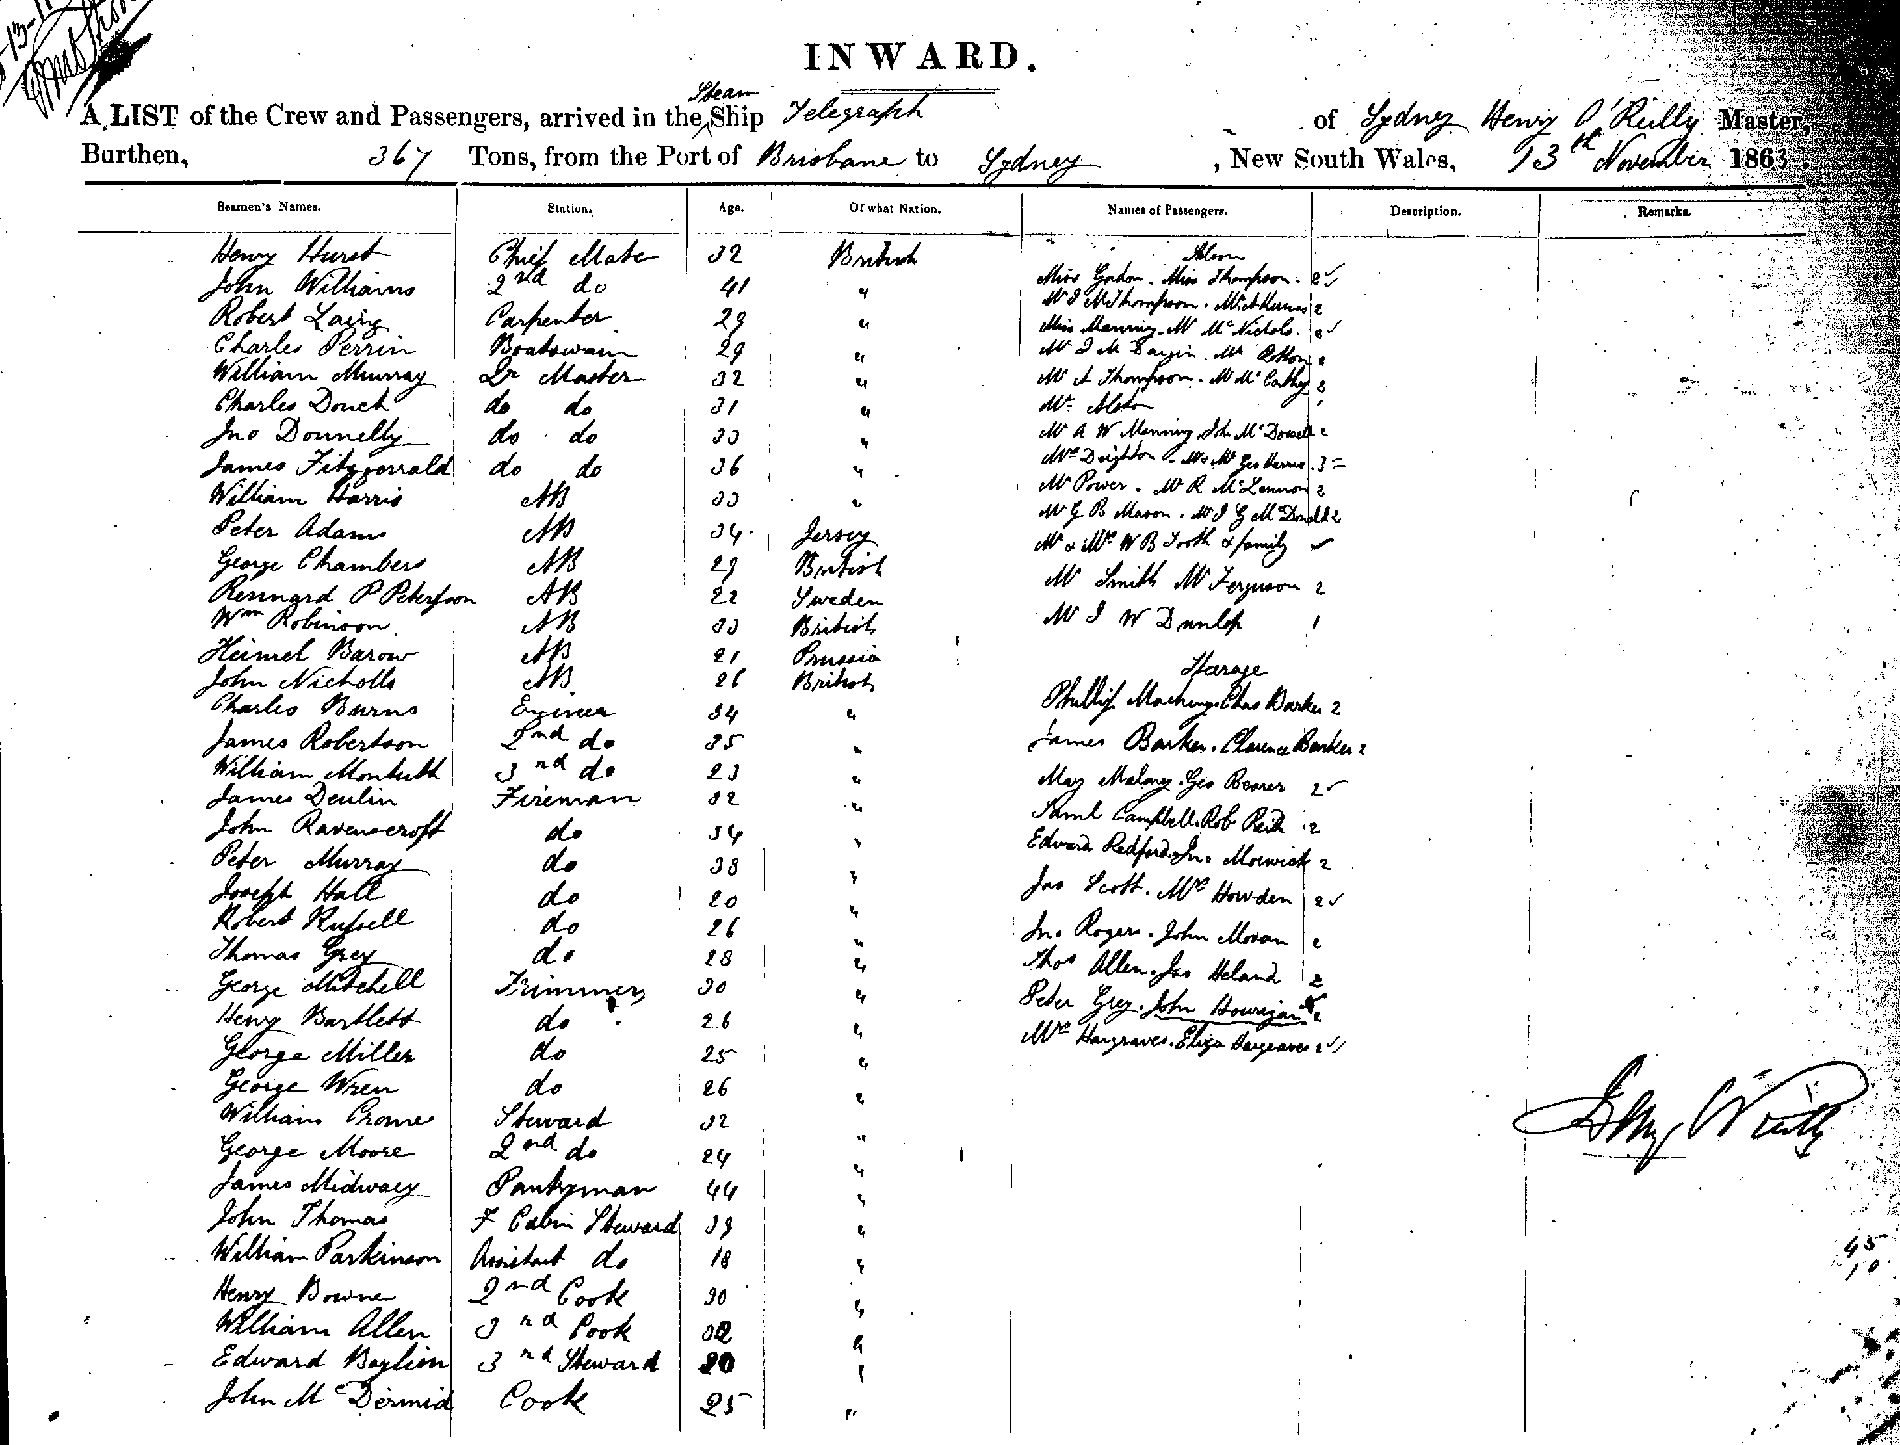 INWARD.
A LIST of the Crew and Passengers, arrived in the Steam Ship Telegraph of Sydney Henry O'Reilly Master,
Burthen, 367 Tons, from the Port of Brisbane to Sydney, New South Wales, 13th November 1863
Seamen's Names. Station. Age. Of what Nation. Names of Passengers. Description. Remarks.
Henry Hurst Chief Mate 32 British
John Williams 2nd do 41 "
Robert Laing Carpenter 29 "
Charles Perrin Boatswain 29 "
William Murray Qr Master 32 "
Charles Douch do do 31 "
Jno Donnelly do do 33 "
James Fitzgerrald do do 36 "
William Harris AB 33 "
Peter Adams AB 34 Jersey
George Chambers AB 29 British
Rennard P Petersson AB 22 Sweden
Wm Robinson AB 33 British
Heinrel Barow AB 21 Prussia
John Nicholls AB 26 British
Charles Burns Engineer 34 "
James Robertson 2nd do 35 "
William Monteith 3nd do 23 "
James Deulin Fireman 32 "
John Ravenscroft do 34 "
Peter Murray do 38 "
Joseph Hall do 20 "
Robert Russell do 26 "
Thomas Grey do 28 "
George Mitchell Trimmer 30 "
Henry Bartlett do 26 "
George Miller do 25 "
George Wren do 26 "
William Crome Steward 32 "
George Moore 2nd do 24 "
James Midwaey Pantryman 44 "
John Thomas F Cabin Steward 39 "
William Parkinson Assistant do 18 "
Henry Bowne 2nd Cook 30 "
William Allen 3nd Cook 32 "
Edward Baylion 3nd Steward 20 "
John McDermid Cook 25 "
Saloon
Miss Gordon. Miss Thompson. 2
Mr J M Thompson. 2
Miss Manning. Mr McNichols. 2
Mr 2
Mr A Thompson. Mr McCathy 2
Mr Alston 1
Mr A W Manning Jno McDowell 2
Mrs Deighton. Mr & Mrs Geo Harris. 3
Mr Power. Mr R McLennon 2
Mr G B Mason. Mr J G McDonald 2
Mr & Mrs W B Tooth & family
Mr Smith Mr Ferguson 2
Mr J W Dunlop 1
Steerage
Phillip Chas Barker 2
James Barker. Clarence Barker 2
May Maloney. Geo Bearer 2
Saml Campbell. Rob Reid 2
Edward Redford. Jno Morwick 2
Jas Scott. Mrs Howden 2
Jno Rogers. John Moran 2
Thos Allen. Jas Heland 2
Peter Grey. John Hourigan 2
Mrs Hargraves. Eliza Hargraves 2
Henry O'Reilly
45
10